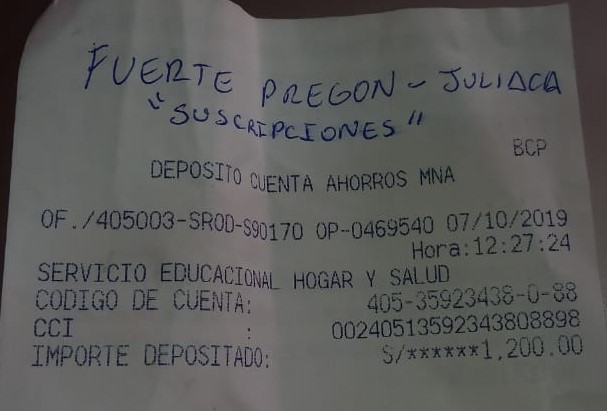 FUERTE PREGON - JULIACA
"SUSCRIPCIONES"
BCP
DEPOSITO CUENTA AHORROS MNA
OF./405003-SROD-S90170 OP-0469540 07/10/2019
Hora:12:27:24
SERVICIO EDUCACIONAL HOGAR Y SALUD
CODIGO DE CUENTA: 405-35923438-0-88
CCI : 00240513592343808898
IMPORTE DEPOSITADO: S/******1,200.00